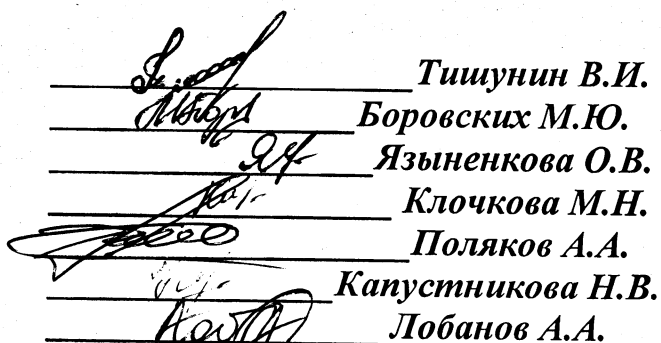 Тишунин В.И.
Боровских М.Ю.
Языненкова О.В.
Клочкова М.Н.
Поляков А.А.
Капустникова Н.В.
Лобанов А.А.